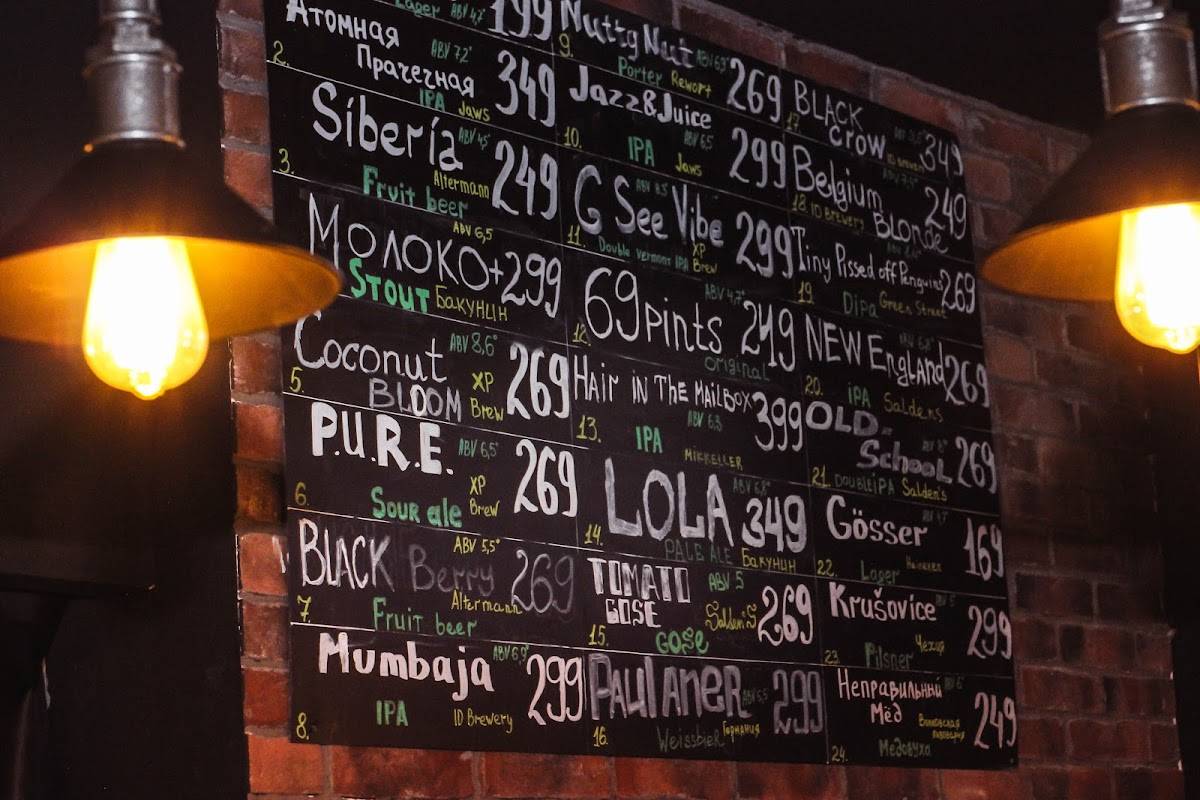 Lager ABV 4,7 199
Атомная
Прачечная
ABV 7,2°
349
2.
IPA Jaws
Siberia
ABV 4,5°
249
3.
Fruit beer Altermann
Молоко+ 299
ABV 6,5
Stout Бакунин
Coconut
BLOOM
ABV 8,6°
269
5.
XP
Brew
P.U.R.E.
ABV 6,5°
269
6.
Sour ale
XP
Brew
BLACK Berry
ABV 5,5°
269
7.
Fruit beer
Altermann
Mumbaja
ABV 6,9°
299
8.
IPA
ID Brewery
Nutty Nut
ABV 6,9°
269
9.
Porter Rewort
Jazz&Juice
ABV 6.5
299
10.
IPA
Jaws
G See Vibe
ABV 8.5°
299
11.
Double vermont IPA
XP
Brew
69 pints
ABV 4,7°
249
12.
original
HAIR IN THE MAILBOX
ABV 6.3
399
13.
IPA
MIKKELLER
LOLA
349
14.
PALE ALE Бакунин
TOMATO
GOSE
ABV 5
269
15.
GOSE
Salden'S
PAULANER
ABV 5,5°
299
16.
Weissbier Германия
BLACK
Crow
349
17.
ID Brewery
Belgium
Blonde
249
18. ID Brewery
Tiny Pissed off Penguins
269
19.
Dipa Green Street
NEW England
269
20.
IPA Saldens
OLD
School
269
21. DOUBLE IPA Salden's
Gösser
169
22.
Lager
Krušovice
299
23.
Чехия
Pilsner
Неправильный
Мёд
249
Волковская
пивоварня
24.
Медовуха